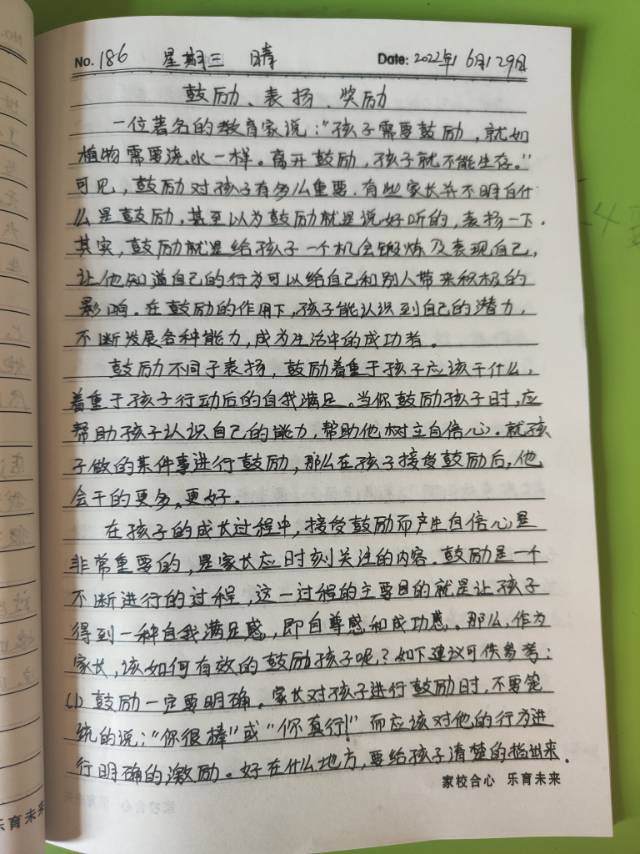 No. 186 星期三 晴 Date: 2022年6月29日
鼓励、表扬、奖励
一位著名的教育家说:"孩子需要鼓励,就如
植物需要浇水一样。离开鼓励,孩子就不能生存。"
可见,鼓励对孩子有多么重要。有些家长并不明白什
么是鼓励,甚至以为鼓励就是说好听的,表扬一下。
其实,鼓励就是给孩子一个机会锻炼及表现自己,
让他知道自己的行为可以给自己和别人带来积极的
影响。在鼓励的作用下,孩子能认识到自己的潜力,
不断发展各种能力,成为生活中的成功者。
鼓励不同于表扬,鼓励着重于孩子应该干什么,
着重于孩子行动后的自我满足。当你鼓励孩子时,应
帮助孩子认识自己的能力,帮助他树立自信心。就孩
子做的某件事进行鼓励,那么在孩子接受鼓励后,他
会干的更多、更好。
在孩子的成长过程中,接受鼓励而产生自信心是
非常重要的,是家长应时刻关注的内容。鼓励是一个
不断进行的过程,这一过程的主要目的就是让孩子
得到一种自我满足感,即自尊感和成功感。那么,作为
家长,该如何有效的鼓励孩子呢?如下建议可供参考:
(1)鼓励一定要明确。家长对孩子进行鼓励时,不要笼
统的说:"你很棒"或"你真行!"而应该对他的行为进
行明确的激励。好在什么地方,要给孩子清楚的指出来。
家校合心 乐育未来
乐育未来